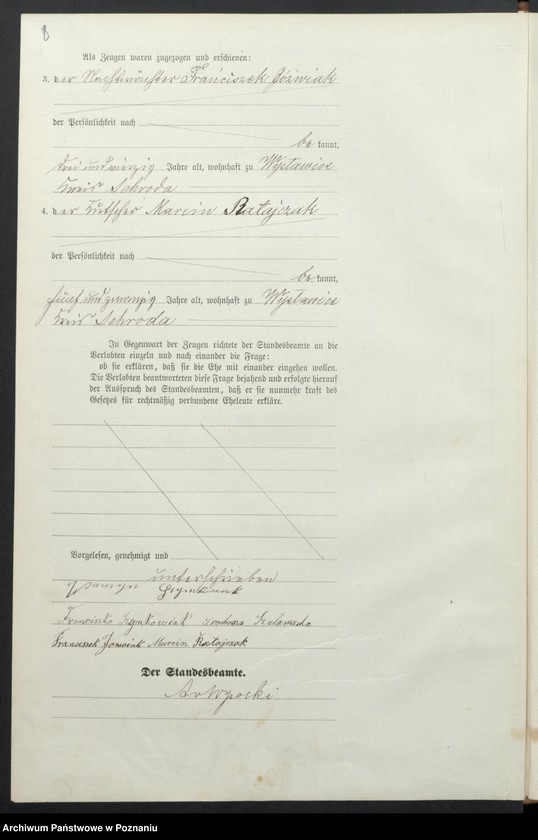 8
Als Zeugen waren zugezogen und erschienen:
3. der Nachtwächter Franciszek Jóźwiak
der Persönlichkeit nach
be kannt,
drei und vierzig Jahre alt, wohnhaft zu Wysławice
Kreis Schroda
4. der Kutscher Marcin Ratajczak
der Persönlichkeit nach
be kannt,
fünf und zwanzig Jahre alt, wohnhaft zu Wysławice
Kreis Schroda
In Gegenwart der Zeugen richtete der Standesbeamte an die
Verlobten einzeln und nach einander die Frage:
ob sie erklären, daß sie die Ehe mit einander eingehen wollen.
Die Verlobten beantworteten diese Frage bejahend und erfolgte hierauf
der Ausspruch des Standesbeamten, daß er sie nunmehr kraft des
Gesetzes für rechtmäßig verbundene Eheleute erkläre.
Vorgelesen, genehmigt und
unterschrieben
Marcin Ratajczak
Der Standesbeamte.
Archiwum Państwowe w Poznaniu